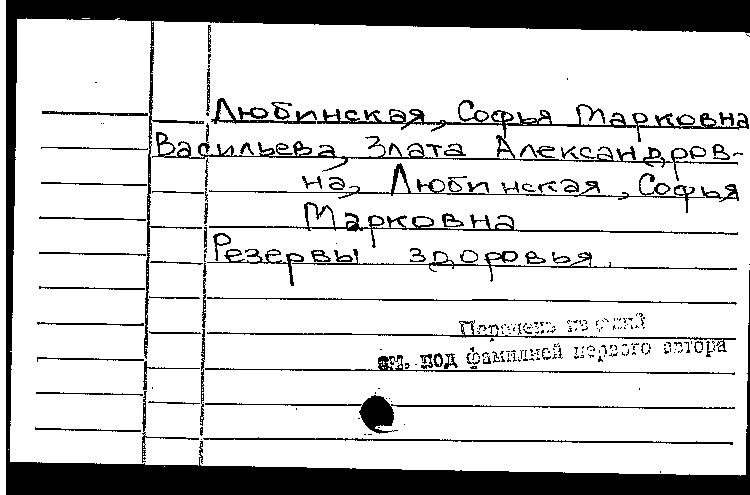 Любинская, Софья Марковна
Васильева, Злата Александров-
на, Любинская, Софья
Марковна
Резервы здоровья.
Перечень изданий
см. под фамилией первого автора